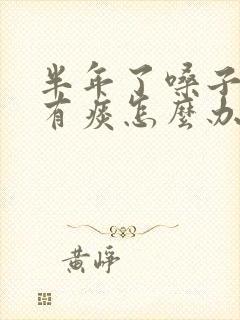 半年了嗓子
有痰怎麼办
黄峥